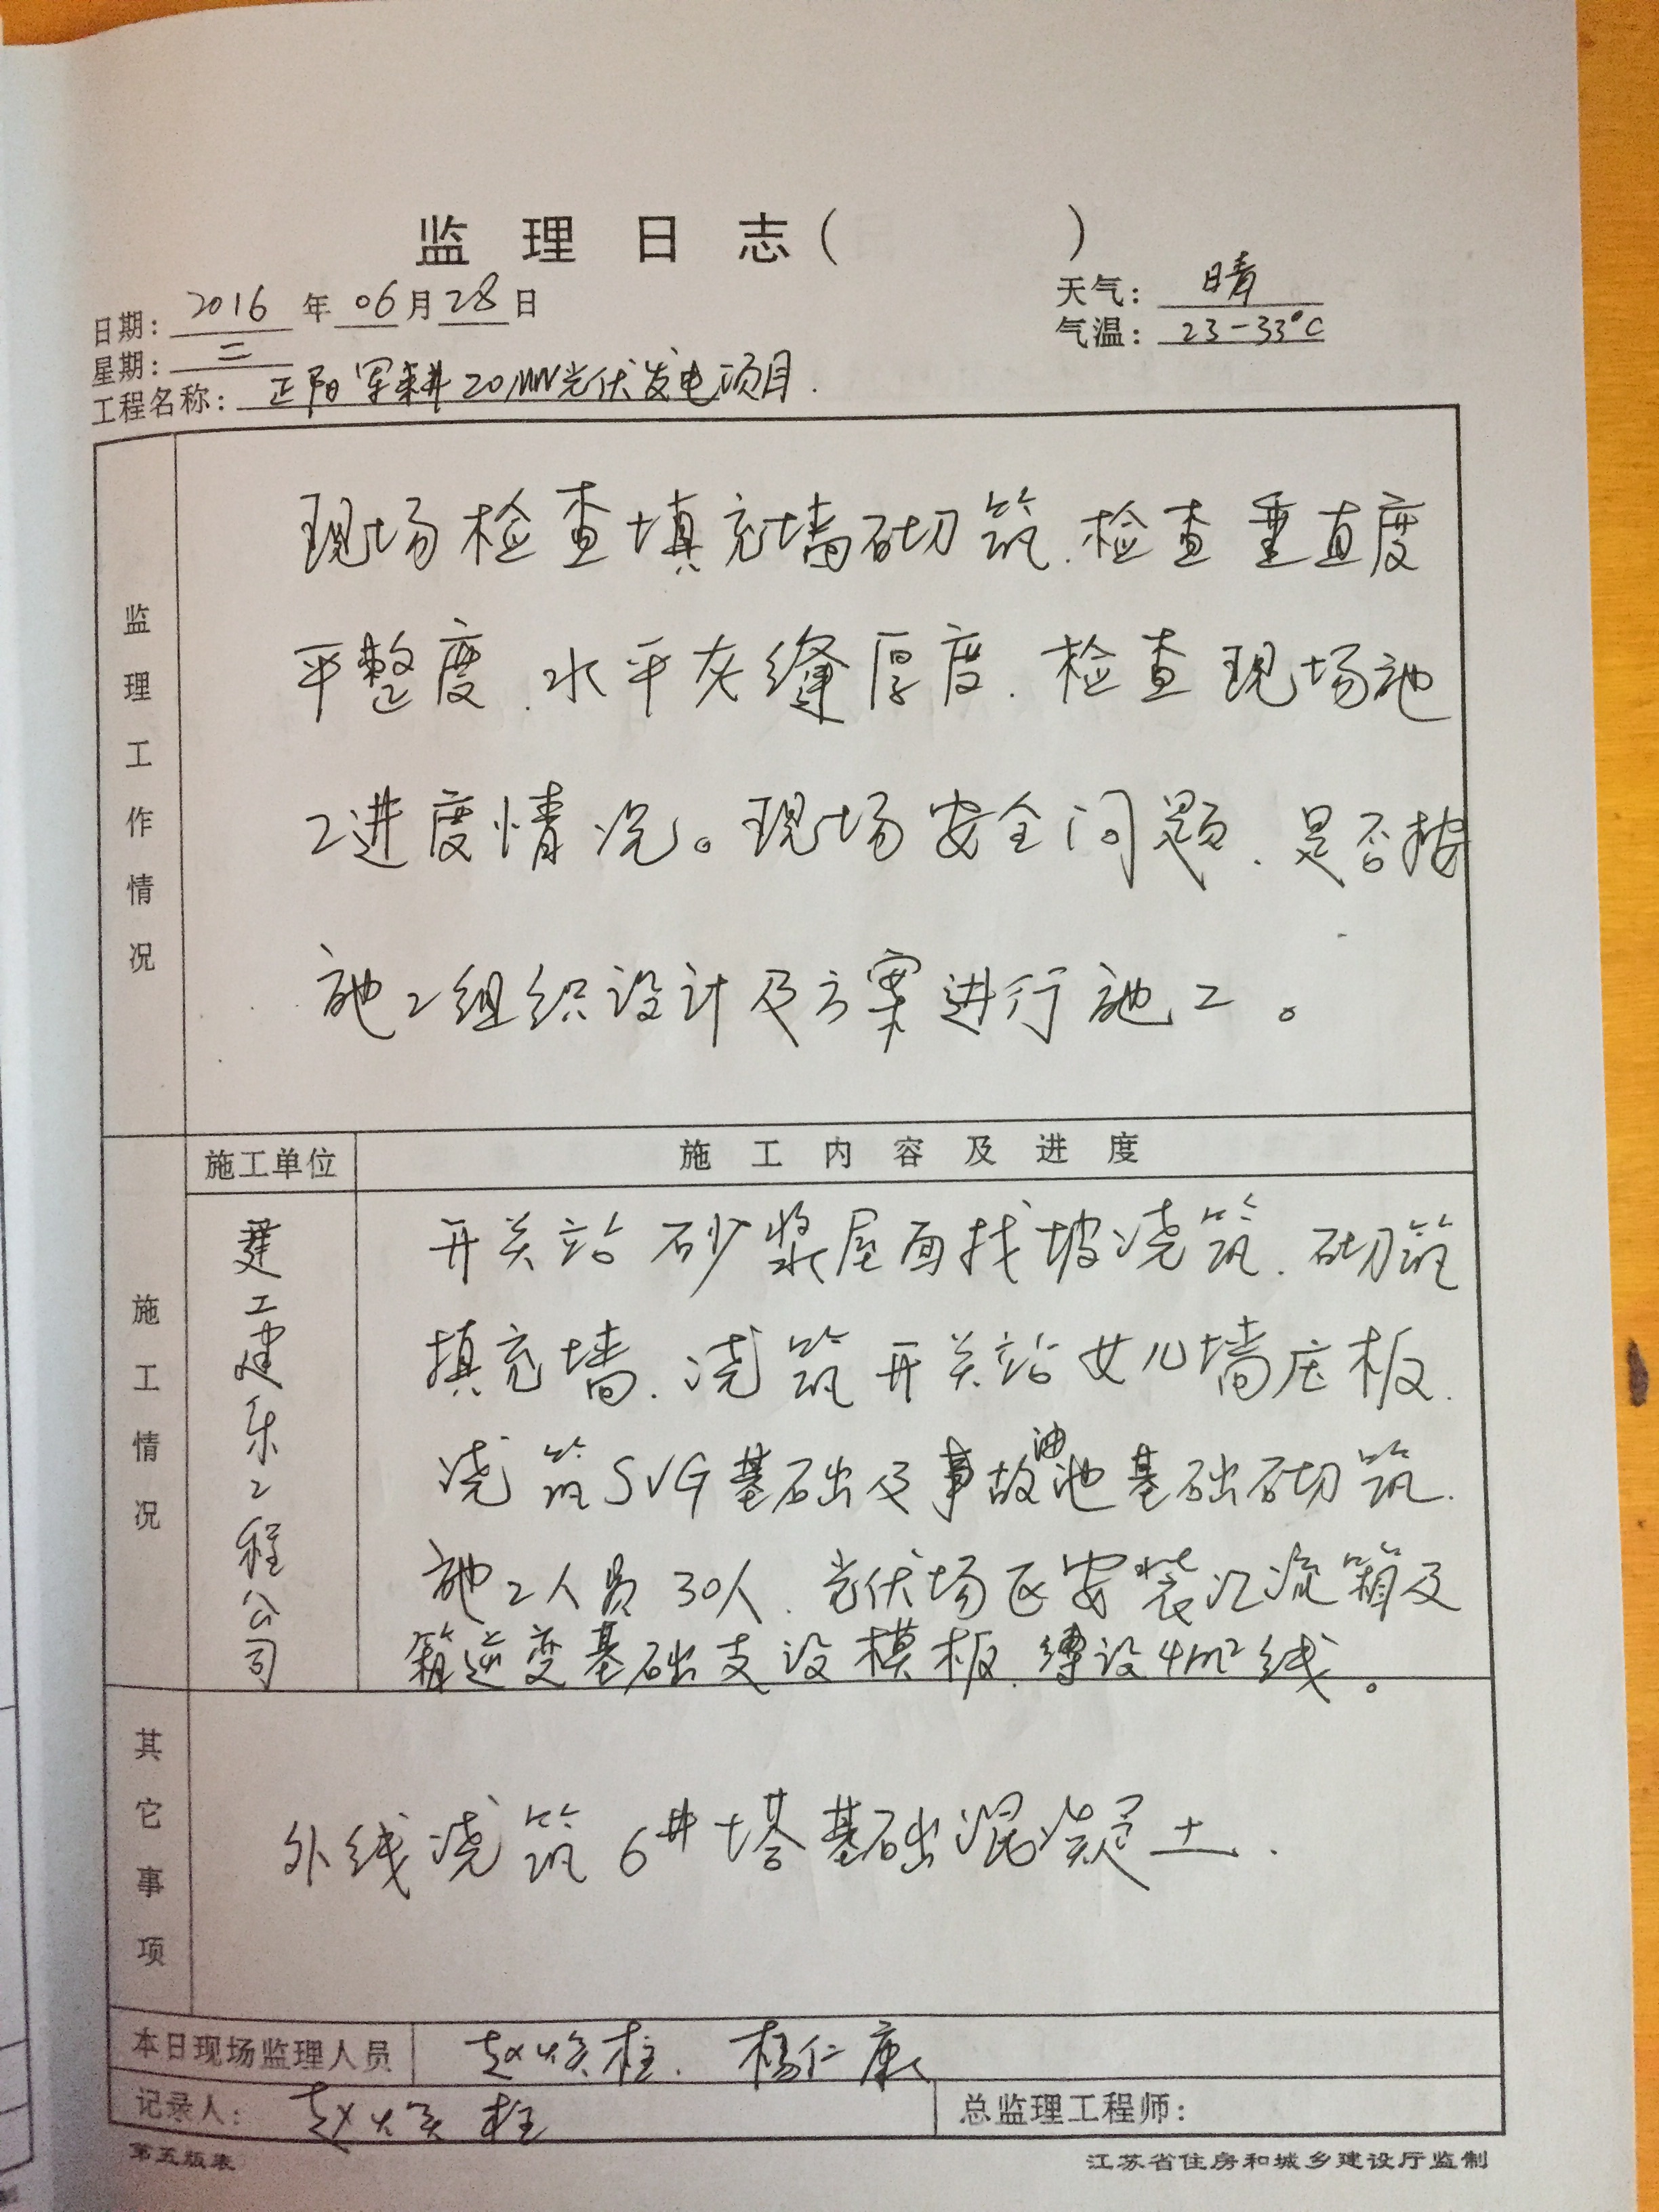 监理日志(　　　)
日期: 2016 年 06 月 28 日
天气: 晴
星期: 二
气温: 23-33°C
工程名称: 正阳军耕20MW光伏发电项目.
监理工作情况
现场检查填充墙砌筑.检查垂直度
平整度.水平灰缝厚度.检查现场施
工进度情况。现场安全问题.是否按
施工组织设计及方案进行施工。
施工情况
施工单位
施工内容及进度
建工建乐工程公司
开关站砂浆屋面找坡浇筑.砌筑
填充墙.浇筑开关站女儿墙压板.
浇筑SVG基础及事故油池基础砌筑.
施工人员30人.光伏场区安装汇流箱及
箱逆变基础支设模板.缚设4m²线。
其它事项
外线浇筑6#塔基础混凝土.
本日现场监理人员 赵焕柱.杨仁康
记录人: 赵焕柱
总监理工程师:
第五版表
江苏省住房和城乡建设厅监制